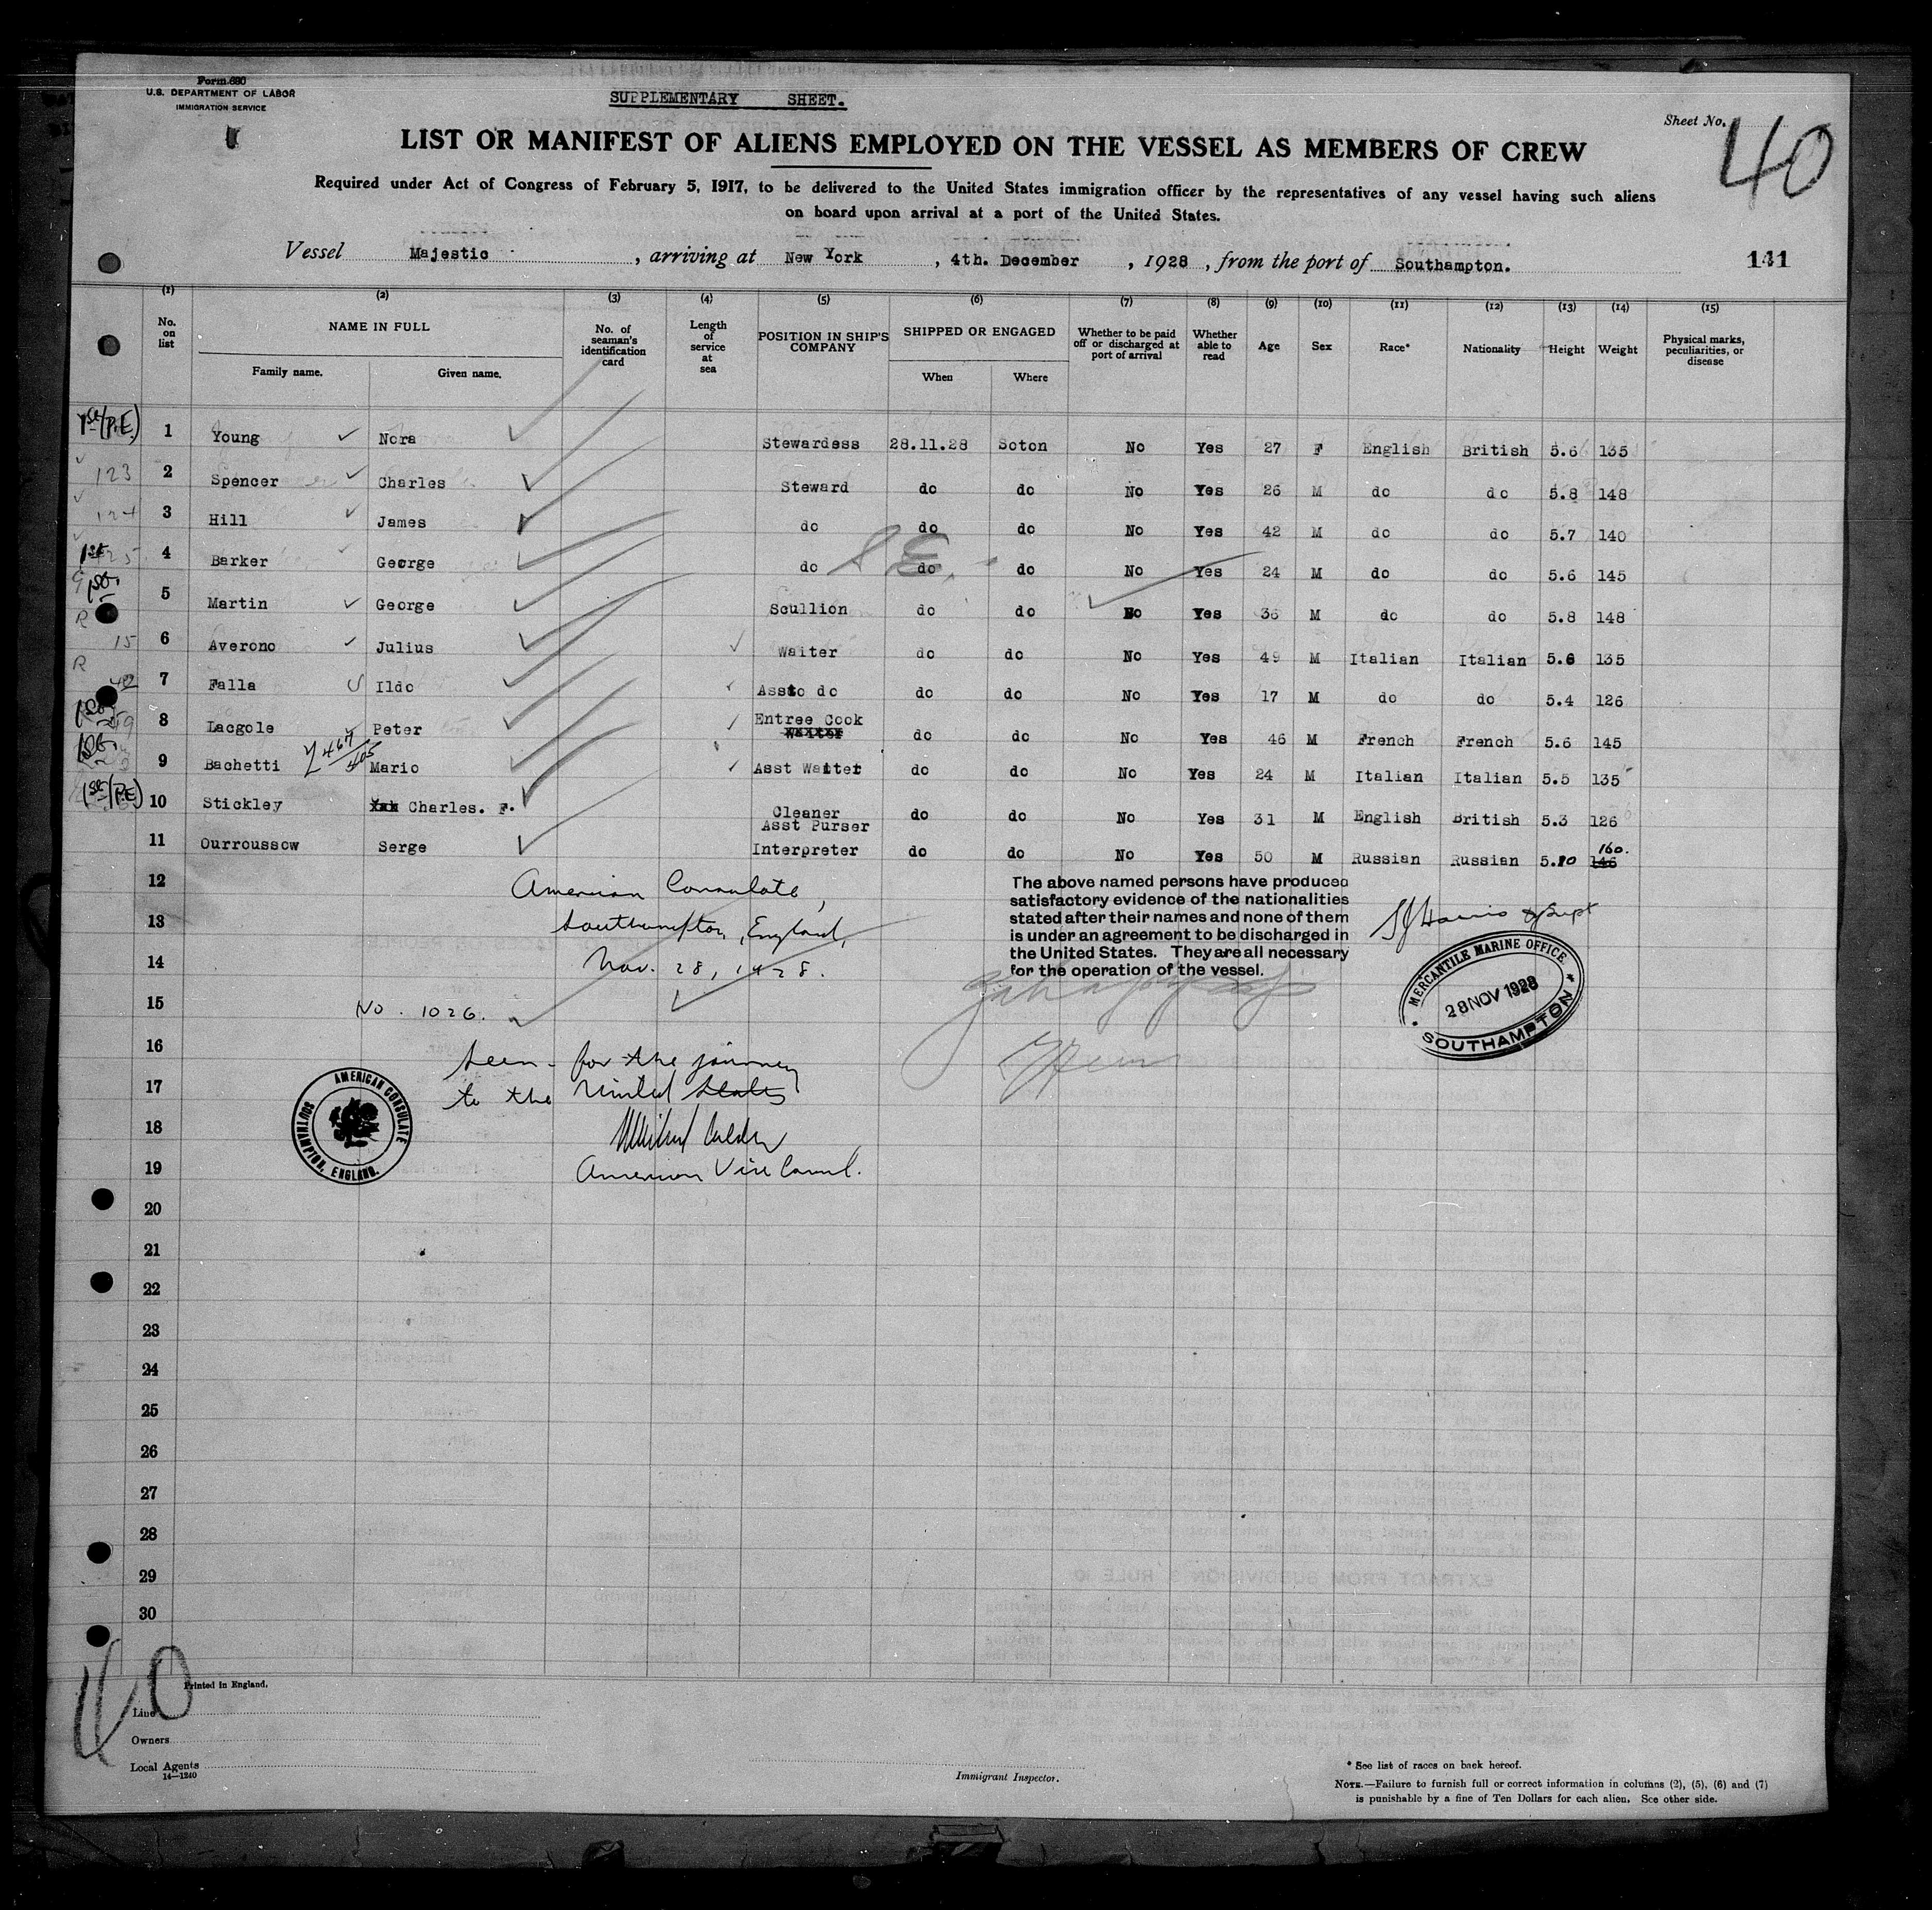 Form 680
U.S. DEPARTMENT OF LABOR
IMMIGRATION SERVICE
SUPPLEMENTARY SHEET.
Sheet No. 40
LIST OR MANIFEST OF ALIENS EMPLOYED ON THE VESSEL AS MEMBERS OF CREW
Required under Act of Congress of February 5, 1917, to be delivered to the United States immigration officer by the representatives of any vessel having such aliens
on board upon arrival at a port of the United States.
Vessel Majestic, arriving at New York, 4th. December, 1928, from the port of Southampton.
141
(1) (2) (3) (4) (5) (6) (7) (8) (9) (10) (11) (12) (13) (14) (15)
No. on list
NAME IN FULL
Family name. Given name.
No. of seaman's identification card
Length of service at sea
POSITION IN SHIP'S COMPANY
SHIPPED OR ENGAGED
When Where
Whether to be paid off or discharged at port of arrival
Whether able to read
Age
Sex
Race*
Nationality
Height
Weight
Physical marks, peculiarities, or disease
1st (P.E.) 1 Young Nora Stewardess 28.11.28 Soton No Yes 27 F English British 5.6 135
123 2 Spencer Charles Steward do do No Yes 26 M do do 5.8 148
124 3 Hill James do do do No Yes 42 M do do 5.7 140
1st 4 Barker George do do do No Yes 24 M do do 5.6 145
1st 5 Martin George Scullion do do No Yes 36 M do do 5.8 148
15 6 Averono Julius Waiter do do No Yes 49 M Italian Italian 5.6 135
7 Falla Ildo Asst do do do No Yes 17 M do do 5.4 126
8 Lacgole Peter Entree Cook do do No Yes 46 M French French 5.6 145
9 Bachetti Mario Asst Waiter do do No Yes 24 M Italian Italian 5.5 135
1st (P.E) 10 Stickley Charles. F. Cleaner do do No Yes 31 M English British 5.3 126
11 Ourroussow Serge Asst Purser Interpreter do do No Yes 50 M Russian Russian 5.10 146 160.
S.E.
12
13
14
15
16
17
18
19
20
21
22
23
24
25
26
27
28
29
30
American Consulate,
Southampton, England,
Nov. 28, 1928.
No. 1026.
Seen - for the journey
to the United States
American Vice Consul.
AMERICAN CONSULATE
SOUTHAMPTON, ENGLAND.
The above named persons have produced
satisfactory evidence of the nationalities
stated after their names and none of them
is under an agreement to be discharged in
the United States. They are all necessary
for the operation of the vessel.
MERCANTILE MARINE OFFICE
28 NOV 1928
SOUTHAMPTON
40
Printed in England.
Line
Owners
Local Agents
14—1240
Immigrant Inspector.
* See list of races on back hereof.
NOTE.—Failure to furnish full or correct information in columns (2), (5), (6) and (7)
is punishable by a fine of Ten Dollars for each alien. See other side.